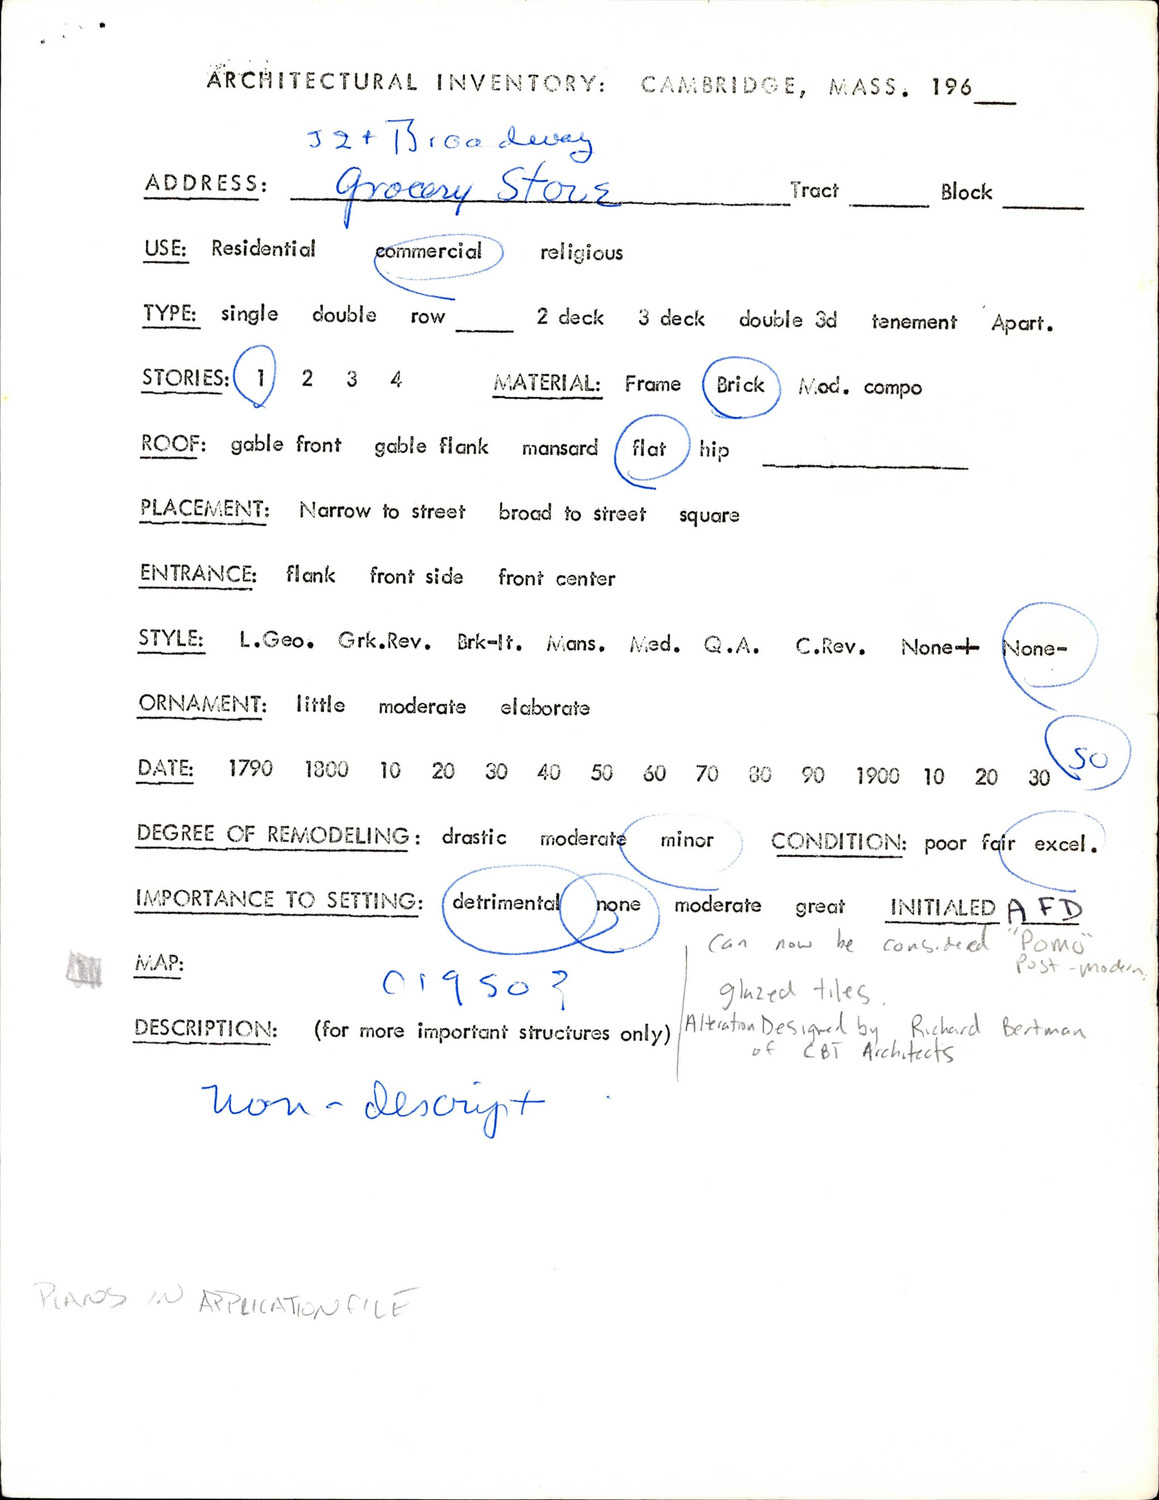 ARCHITECTURAL INVENTORY: CAMBRIDGE, MASS. 196___
Broadway
ADDRESS: Grocery Store Tract ____ Block ____
USE: Residential commercial religious
TYPE: single double row ____ 2 deck 3 deck double 3d tenement Apart.
STORIES: 1 2 3 4 MATERIAL: Frame Brick Mod. compo
ROOF: gable front gable flank mansard flat hip ____
PLACEMENT: Narrow to street broad to street square
ENTRANCE: flank front side front center
STYLE: L.Geo. Grk.Rev. Brk-It. Mans. Med. Q.A. C.Rev. None+ None-
ORNAMENT: little moderate elaborate
DATE: 1790 1800 10 20 30 40 50 60 70 80 90 1900 10 20 30 50
DEGREE OF REMODELING: drastic moderate minor CONDITION: poor fair excel.
IMPORTANCE TO SETTING: detrimental none moderate great INITIALED AFD
Can now be considered "Pomo"
Post-modern.
MAP:
C 1950?
glazed tiles.
DESCRIPTION: (for more important structures only)
Alteration Designed by Richard Bertman
of CBT Architects
non-descript
PLANS IN APPLICATION FILE